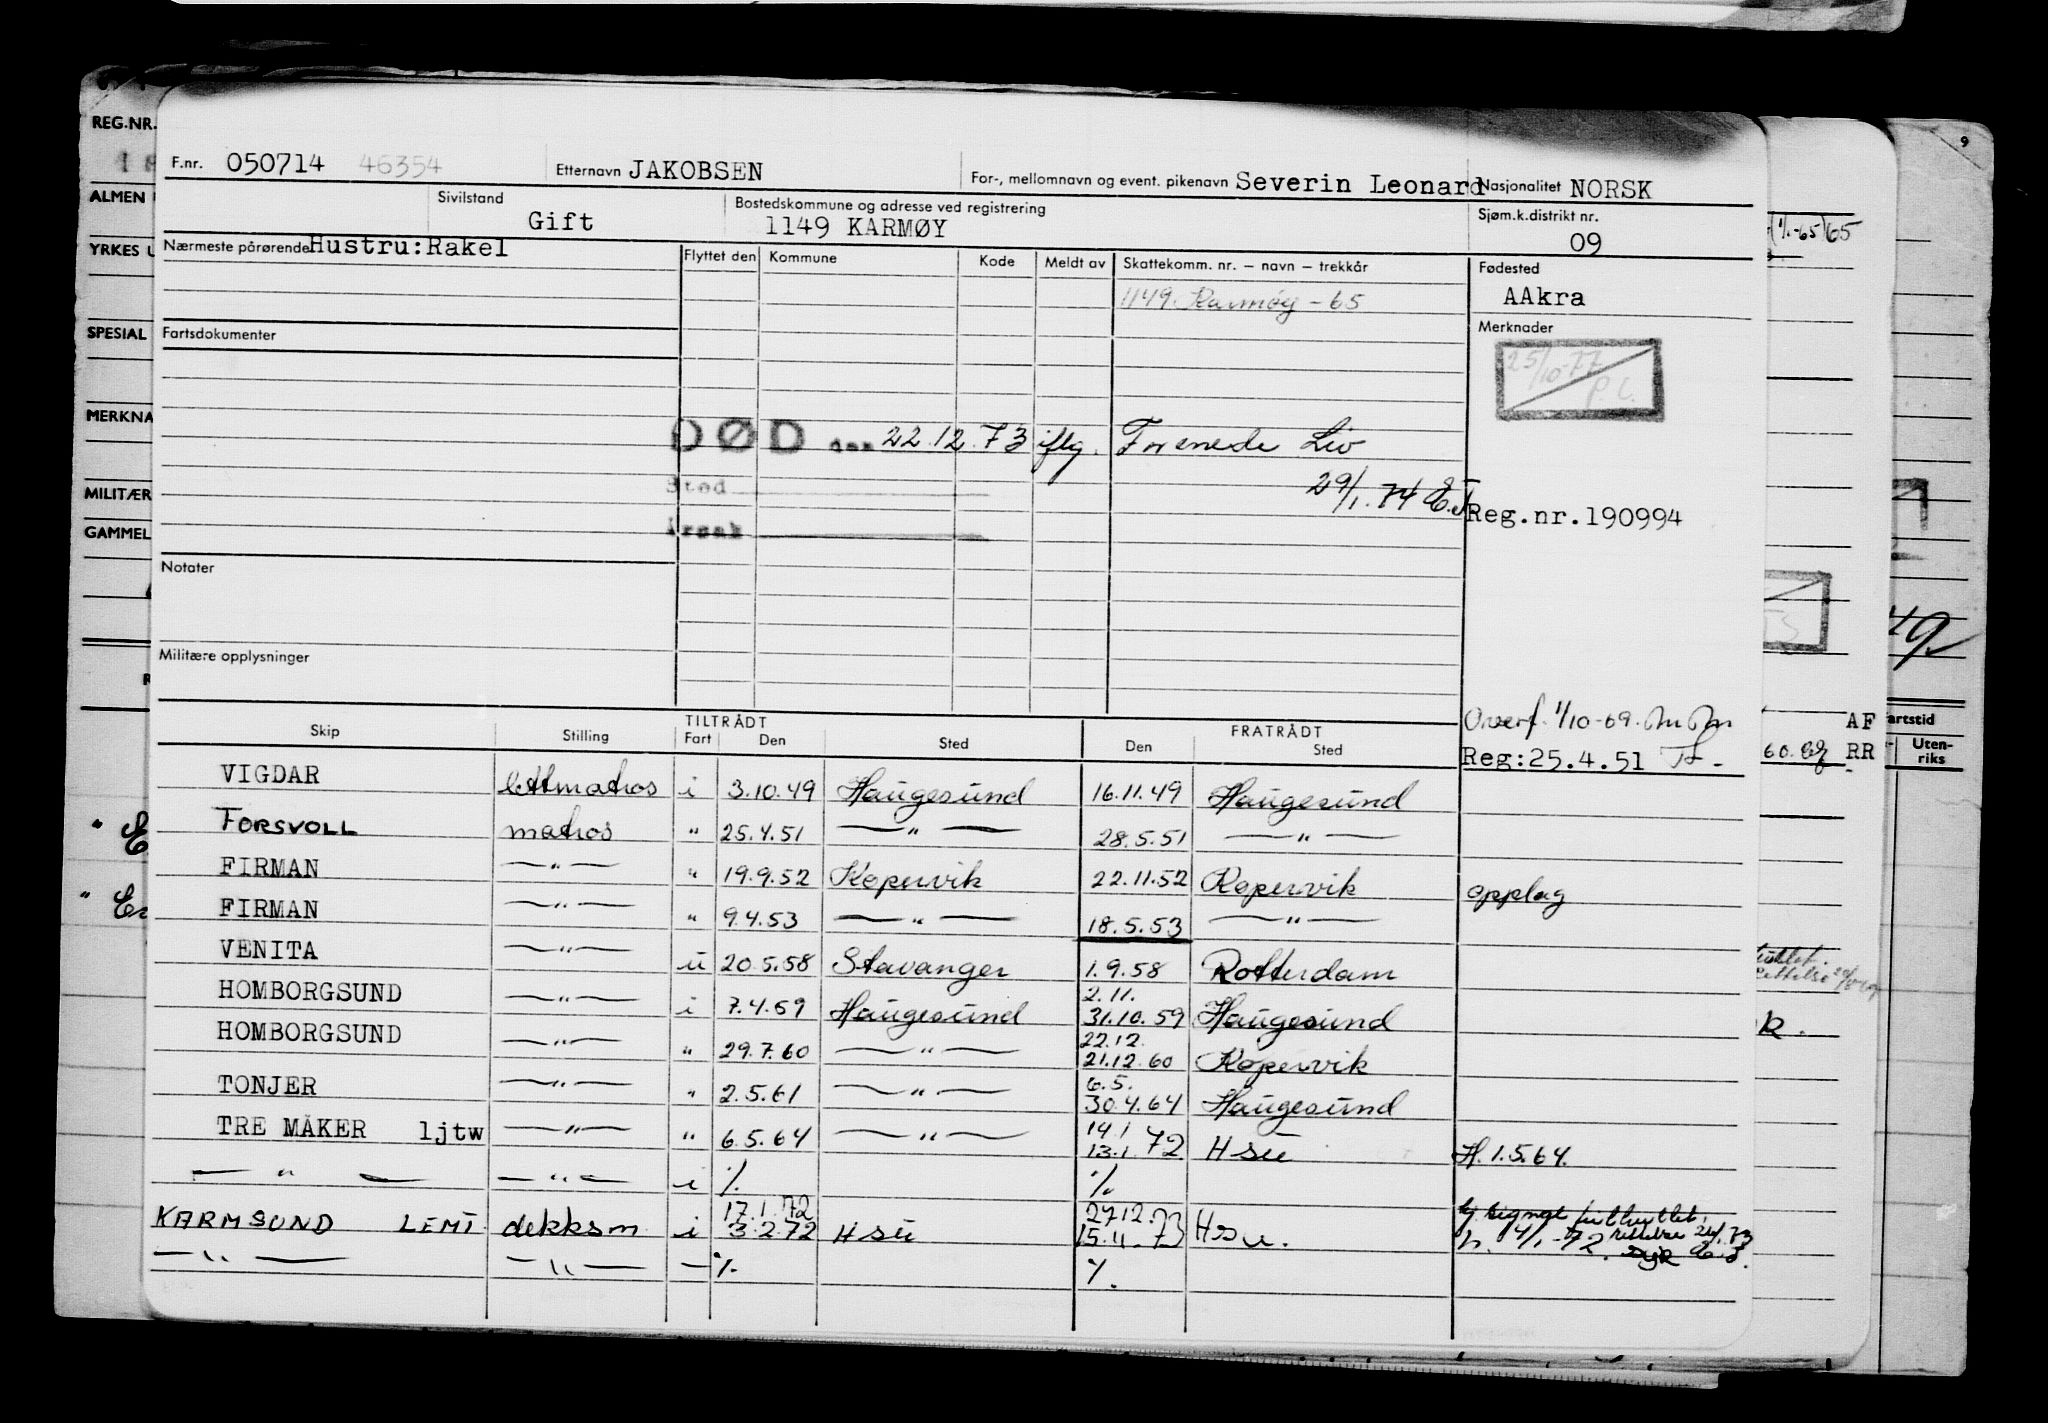 REG.NR.
ALMEN
YRKES U
SPESIAL
MERKNA
MILITÆR
GAMMEL
9
F.nr. 050714 46354 Etternavn JAKOBSEN For-, mellomnavn og event. pikenavn Severin Leonard Nasjonalitet NORSK
Sivilstand Gift Bostedskommune og adresse ved registrering 1149 KARMØY Sjøm.k.distrikt nr. 09
Nærmeste pårørende Hustru:Rakel Flyttet den Kommune Kode Meldt av Skattekomm. nr. – navn – trekkår Fødested AAkra
1149. Karmøy - 65
Fartsdokumenter Merknader
25/10-77 P.L.
DØD den 22.12.73 iflg. Forenede Liv
Sted 29/1.74 E.J.
Årsak Reg.nr.190994
Notater
Militære opplysninger
Overf. 1/10-69.
Skip Stilling TILTRÅDT Fart Den Sted FRATRÅDT Den Sted Reg:25.4.51
VIGDAR lettmatros i 3.10.49 Haugesund 16.11.49 Haugesund
FORSVOLL matros " 25.4.51 —"— 28.5.51 —"—
FIRMAN —"— " 19.9.52 Kopervik 22.11.52 Kopervik opplag
FIRMAN —"— " 9.4.53 —"— 18.5.53 —"—
VENITA —"— u 20.5.58 Stavanger 1.9.58 Rotterdam
HOMBORGSUND —"— i 7.4.59 Haugesund 2.11. 31.10.59 Haugesund
HOMBORGSUND —"— " 29.7.60 —"— 22.12. 21.12.60 Kopervik
TONJER —"— " 2.5.61 —"— 6.5. 30.4.64 Haugesund
TRE MÅKER ljtw —"— " 6.5.64 —"— 14.1 13.1.72 Hsu H.1.5.64.
—"— —"— i % %
KARMSUND LEMI dekksm. i 17.1.72 3.2.72 Hsu 27.12.73 15.11.73 Hsu. h. 4/1-72. rettelse syk
—"— —"— — % %
(1/1-65) 65
49.
AF
60. RR
artstid
Uten-
riks